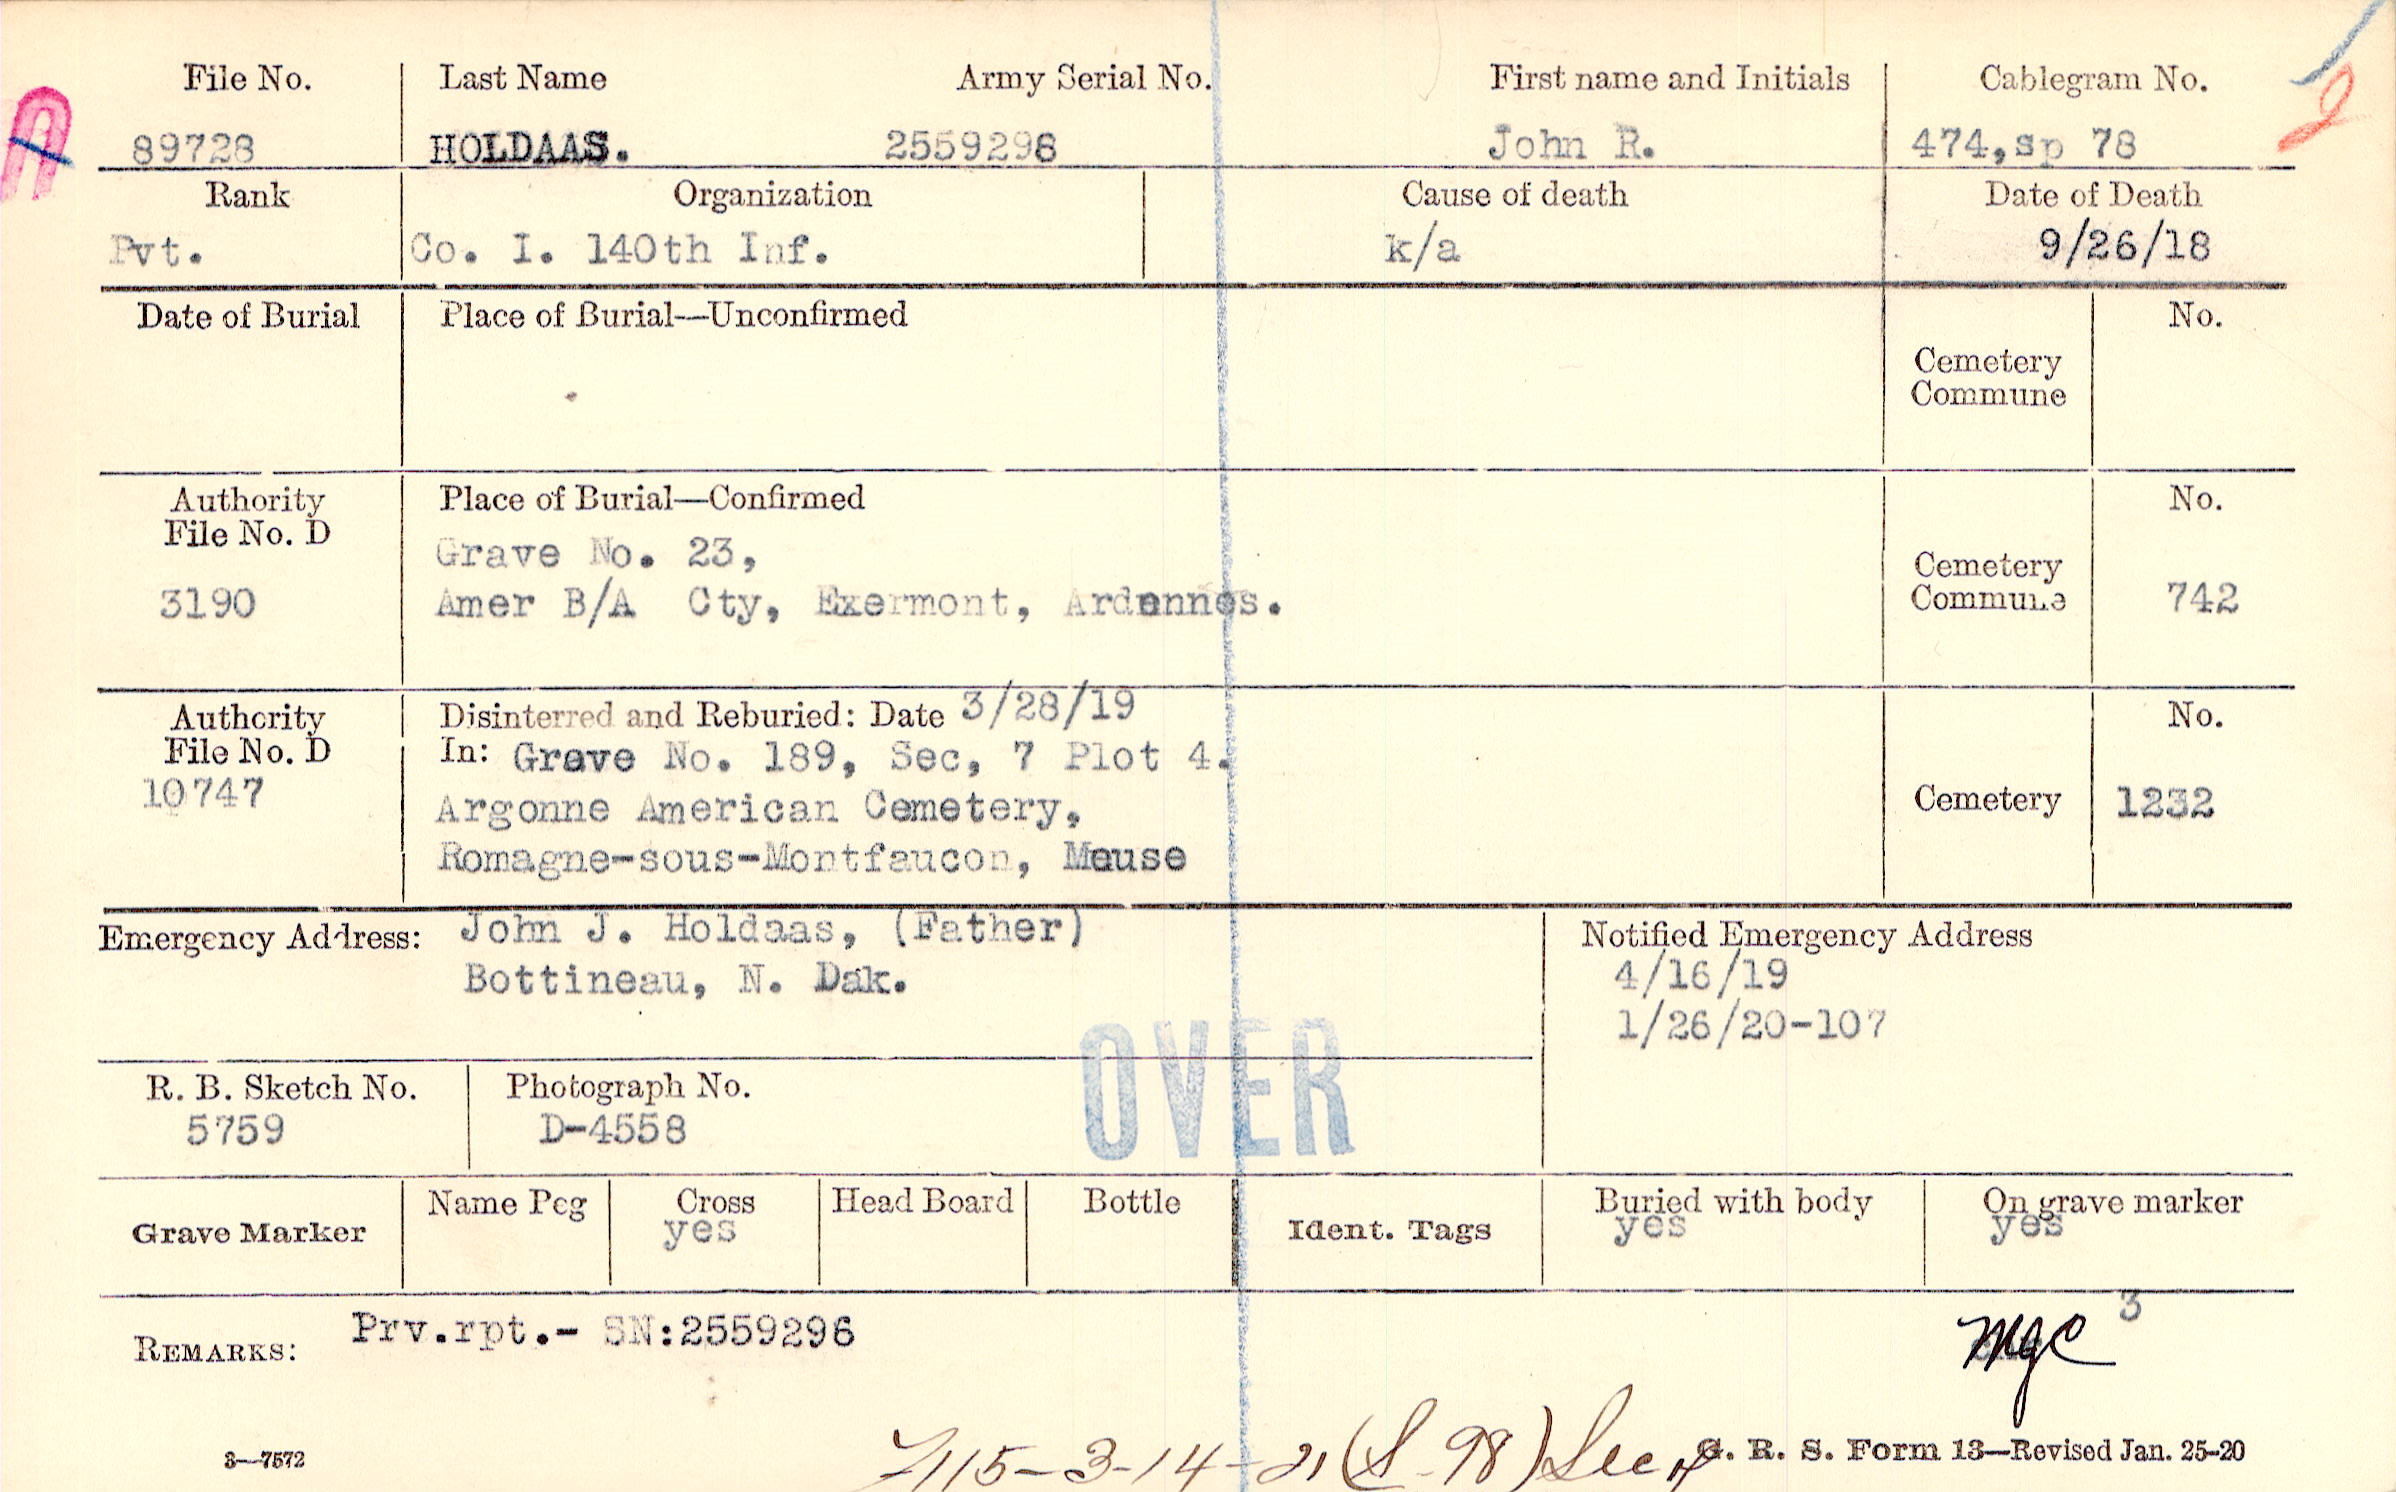 File No. Last Name Army Serial No. First name and Initials Cablegram No.
A 2
89728 HOLDAAS. 2559296 John R. 474,sp 78
Rank Organization Cause of death Date of Death
Pvt. Co. I. 140th Inf. k/a 9/26/18
Date of Burial Place of Burial—Unconfirmed No.
Cemetery
Commune
Authority Place of Burial—Confirmed No.
File No. D
Grave No. 23,
Cemetery
3190 Amer B/A Cty, Exermont, Ardennes. Commune 742
Authority Disinterred and Reburied: Date 3/28/19 No.
File No. D In: Grave No. 189, Sec, 7 Plot 4.
10747 Argonne American Cemetery, Cemetery 1232
Romagne-sous-Montfaucon, Meuse
Emergency Address: John J. Holdaas, (Father) Notified Emergency Address
Bottineau, N. Dak. 4/16/19
1/26/20-107
OVER
R. B. Sketch No. Photograph No.
5759 D-4558
Grave Marker Name Peg Cross Head Board Bottle Ident. Tags Buried with body On grave marker
yes yes yes
3
REMARKS: Prv.rpt.- SN:2559296 MgC
3—7572 115-3-14-21 (S-98) G. R. S. Form 13—Revised Jan. 25-20